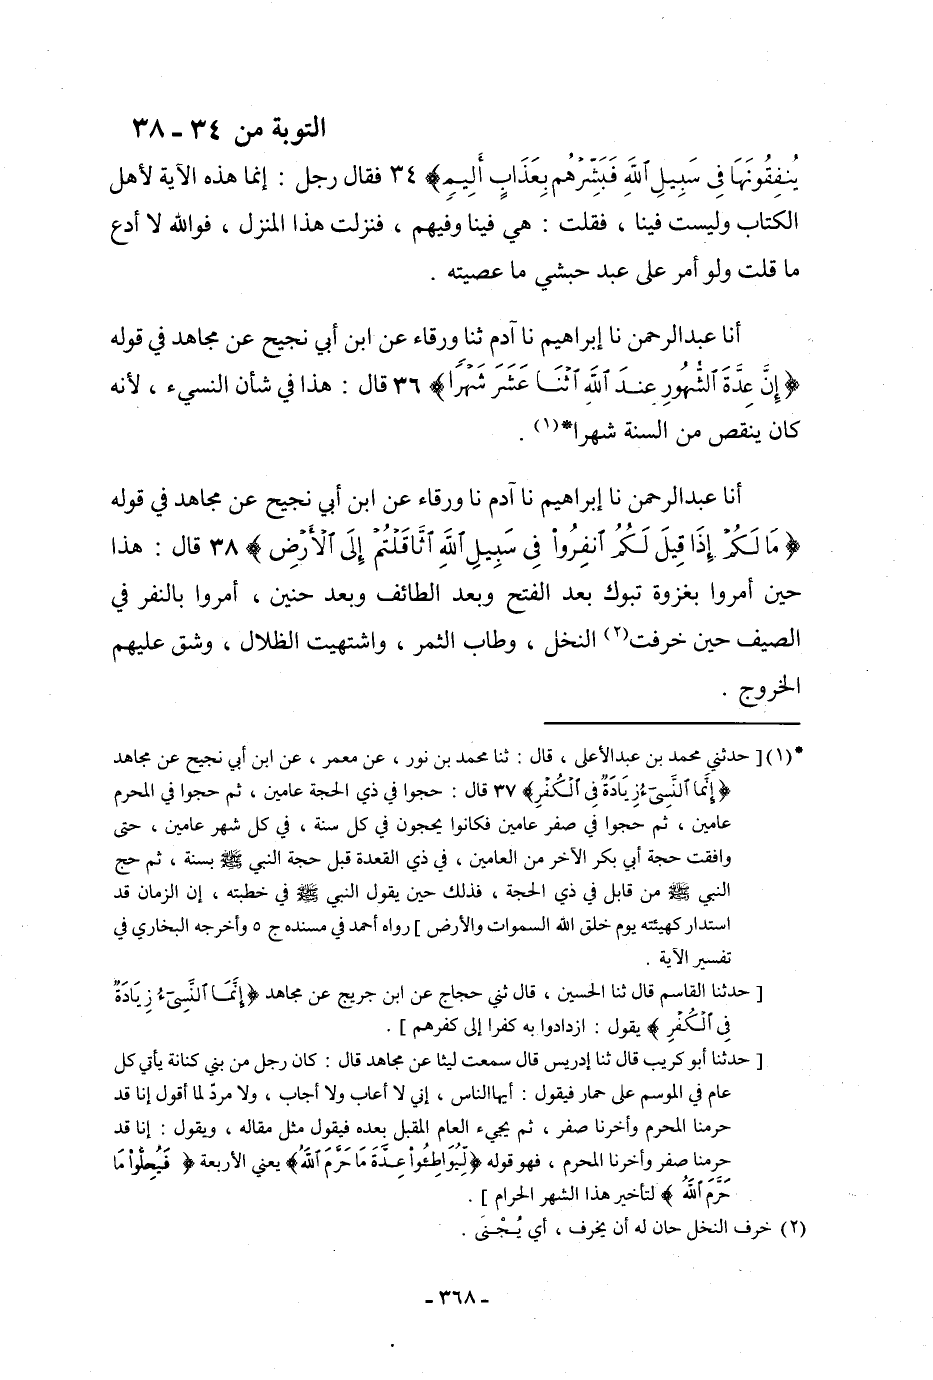 التوبة من ٣٤ ـ ٣٨
يُنفِقُونَهَا فِي سَبِيلِ ٱللَّهِ فَبَشِّرْهُم بِعَذَابٍ أَلِيمٍ﴾ ٣٤ فقال رجل : إنما هذه الآية لأهل
الكتاب وليست فينا ، فقلت : هي فينا وفيهم ، فنزلت هذا المنزل ، فوالله لا أدع
ما قلت ولو أمر على عبد حبشي ما عصيته .
أنا عبدالرحمن نا إبراهيم نا آدم ثنا ورقاء عن ابن أبي نجيح عن مجاهد في قوله
﴿إِنَّ عِدَّةَ ٱلشُّهُورِ عِندَ ٱللَّهِ ٱثْنَا عَشَرَ شَهْرًا﴾ ٣٦ قال : هذا في شأن النسيء ، لأنه
كان ينقص من السنة شهرا*(١) .
أنا عبدالرحمن نا إبراهيم نا آدم نا ورقاء عن ابن أبي نجيح عن مجاهد في قوله
﴿مَا لَكُمْ إِذَا قِيلَ لَكُمُ ٱنفِرُوا۟ فِي سَبِيلِ ٱللَّهِ ٱثَّاقَلْتُمْ إِلَى ٱلْأَرْضِ﴾ ٣٨ قال : هذا
حين أمروا بغزوة تبوك بعد الفتح وبعد الطائف وبعد حنين ، أمروا بالنفر في
الصيف حين خرفت(٢) النخل ، وطاب الثمر ، واشتهيت الظلال ، وشق عليهم
الخروج .
*(١)[ حدثني محمد بن عبدالأعلى ، قال : ثنا محمد بن نور ، عن معمر ، عن ابن أبي نجيح عن مجاهد
﴿إِنَّمَا ٱلنَّسِىٓءُ زِيَادَةٌ فِي ٱلْكُفْرِ﴾ ٣٧ قال : حجوا في ذي الحجة عامين ، ثم حجوا في المحرم
عامين ، ثم حجوا في صفر عامين فكانوا يحجون في كل سنة ، في كل شهر عامين ، حتى
وافقت حجة أبي بكر الآخر من العامين ، في ذي القعدة قبل حجة النبي ﷺ بسنة ، ثم حج
النبي ﷺ من قابل في ذي الحجة ، فذلك حين يقول النبي ﷺ في خطبته ، إن الزمان قد
استدار كهيئته يوم خلق الله السموات والأرض ] رواه أحمد في مسنده ج ٥ وأخرجه البخاري في
تفسير الآية .
[ حدثنا القاسم قال ثنا الحسين ، قال ثني حجاج عن ابن جريج عن مجاهد ﴿إِنَّمَا ٱلنَّسِىٓءُ زِيَادَةٌ
فِي ٱلْكُفْرِ﴾ يقول : ازدادوا به كفرا إلى كفرهم ] .
[ حدثنا أبو كريب قال ثنا إدريس قال سمعت ليثا عن مجاهد قال : كان رجل من بني كنانة يأتي كل
عام في الموسم على حمار فيقول : أيهاالناس ، إني لا أعاب ولا أجاب ، ولا مردّ لما أقول إنا قد
حرمنا المحرم وأخرنا صفر ، ثم يجيء العام المقبل بعده فيقول مثل مقاله ، ويقول : إنا قد
حرمنا صفر وأخرنا المحرم ، فهو قوله ﴿لِّيُوَاطِـُٔوا۟ عِدَّةَ مَا حَرَّمَ ٱللَّهُ﴾ يعني الأربعة ﴿فَيُحِلُّوا۟ مَا
حَرَّمَ ٱللَّهُ﴾ لتأخير هذا الشهر الحرام ] .
(٢) خرف النخل حان له أن يخرف ، أي يُجْنىَ .
ـ ٣٦٨ ـ